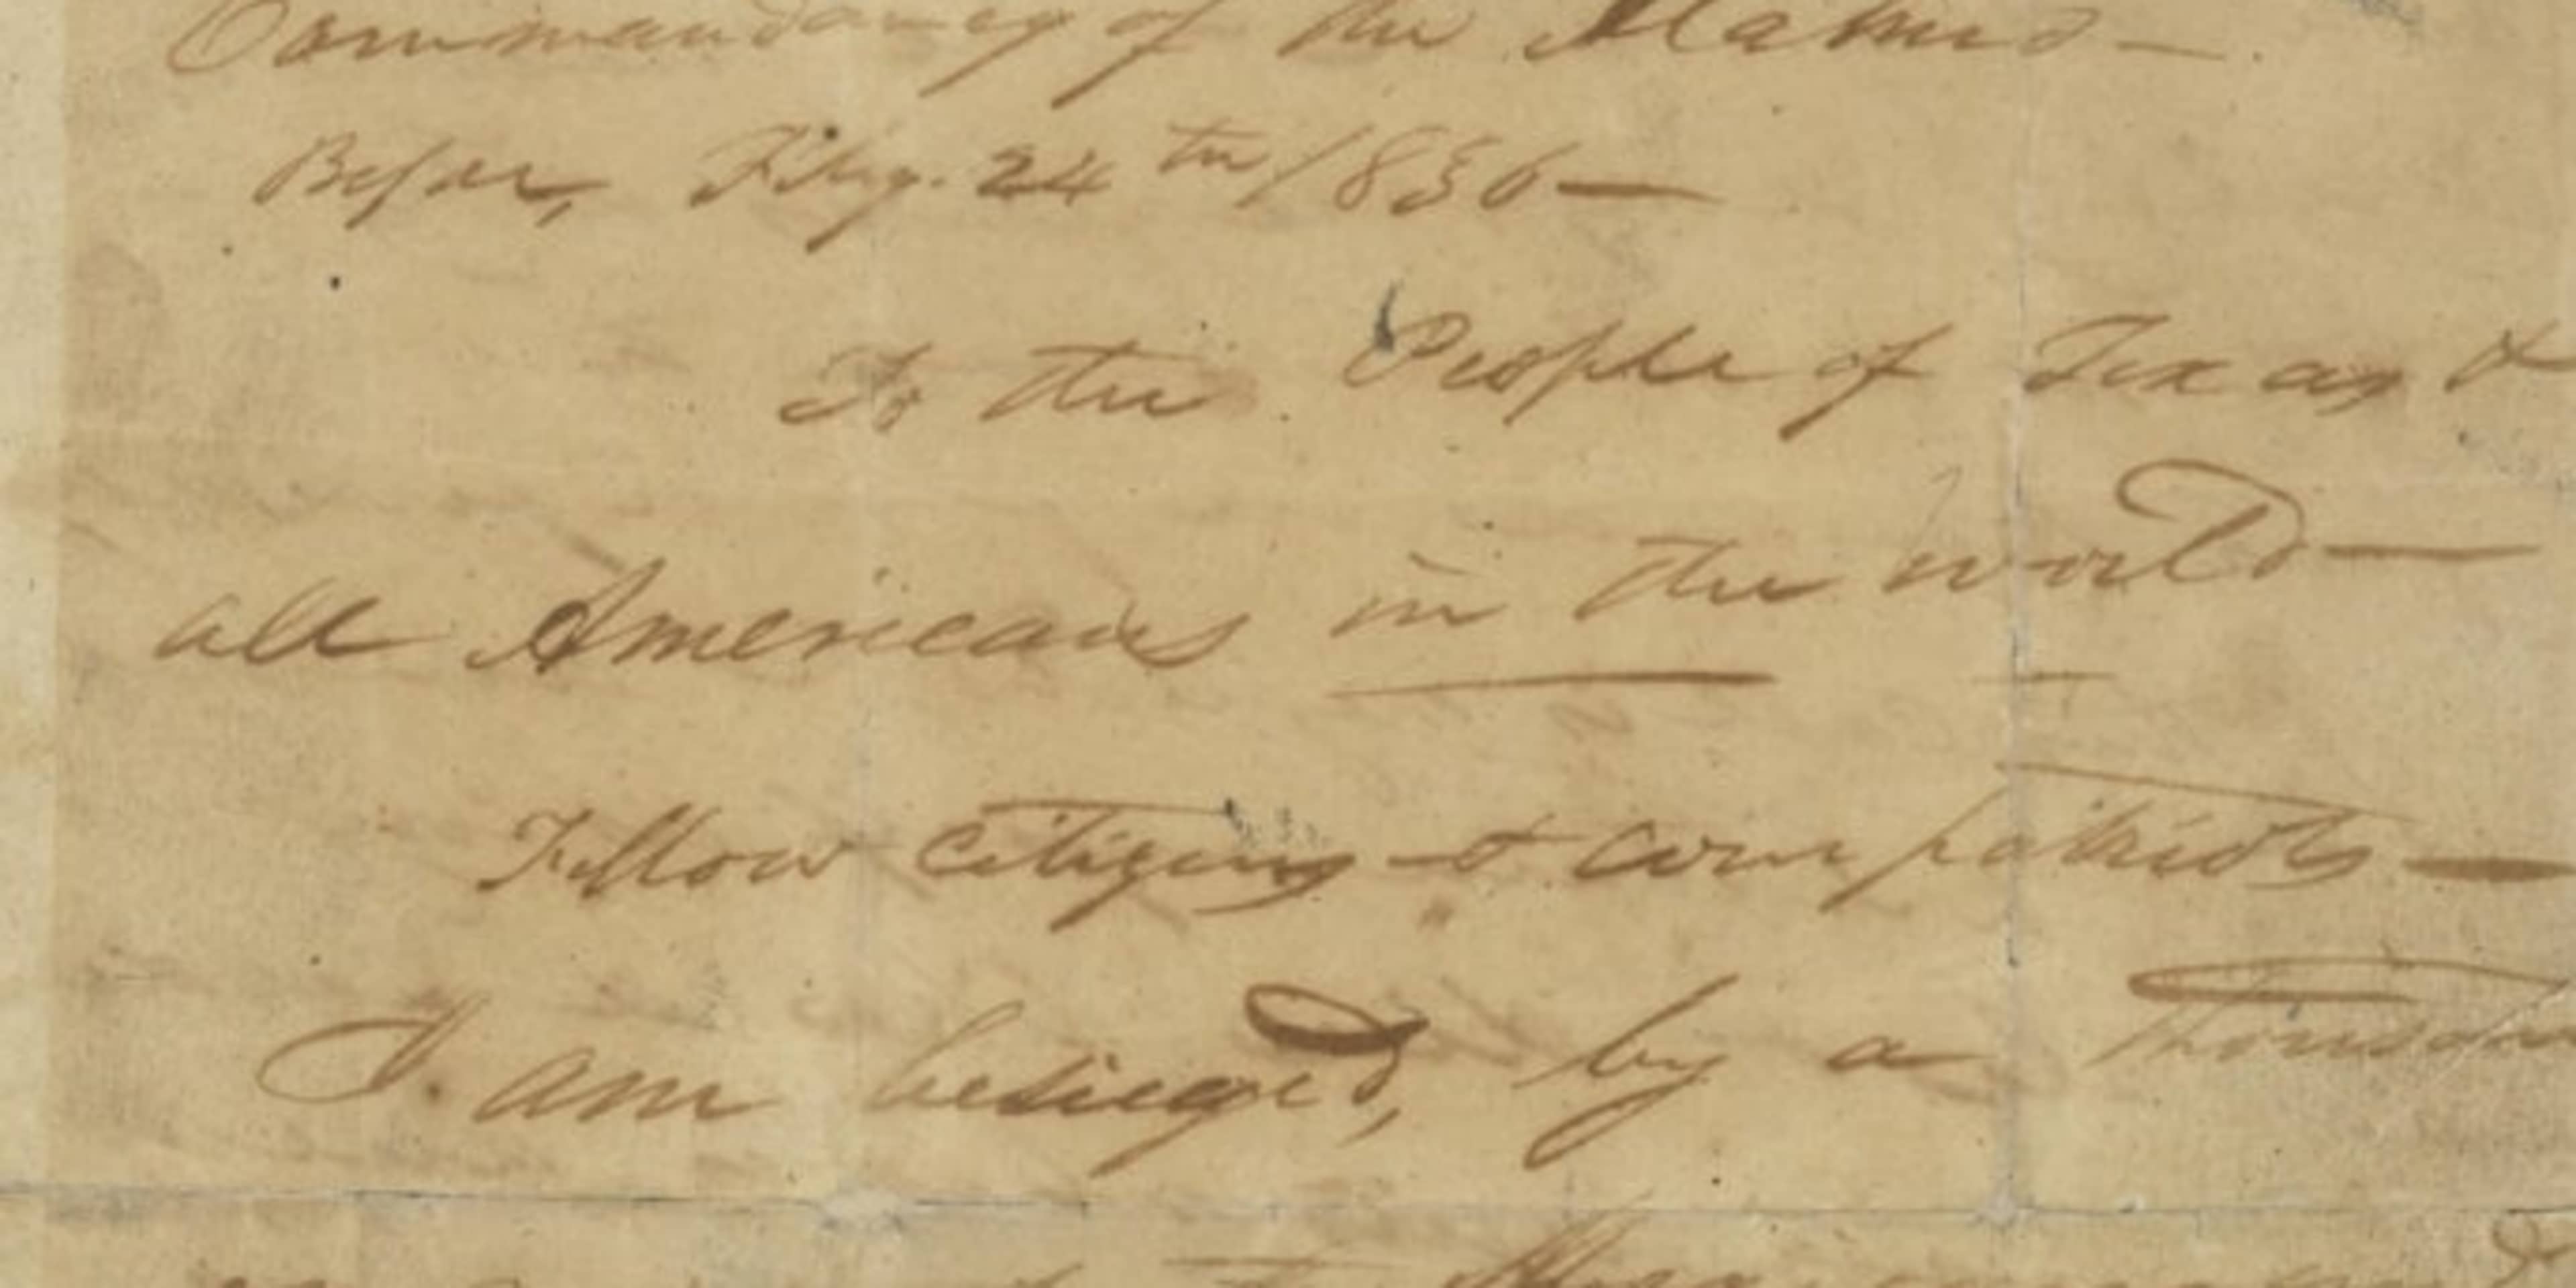 Commandancy of the Alamo—
Bejar, Feby. 24th 1836—
To the People of Texas &
all Americans in the world—
Fellow citizens & compatriots—
I am besieged, by a